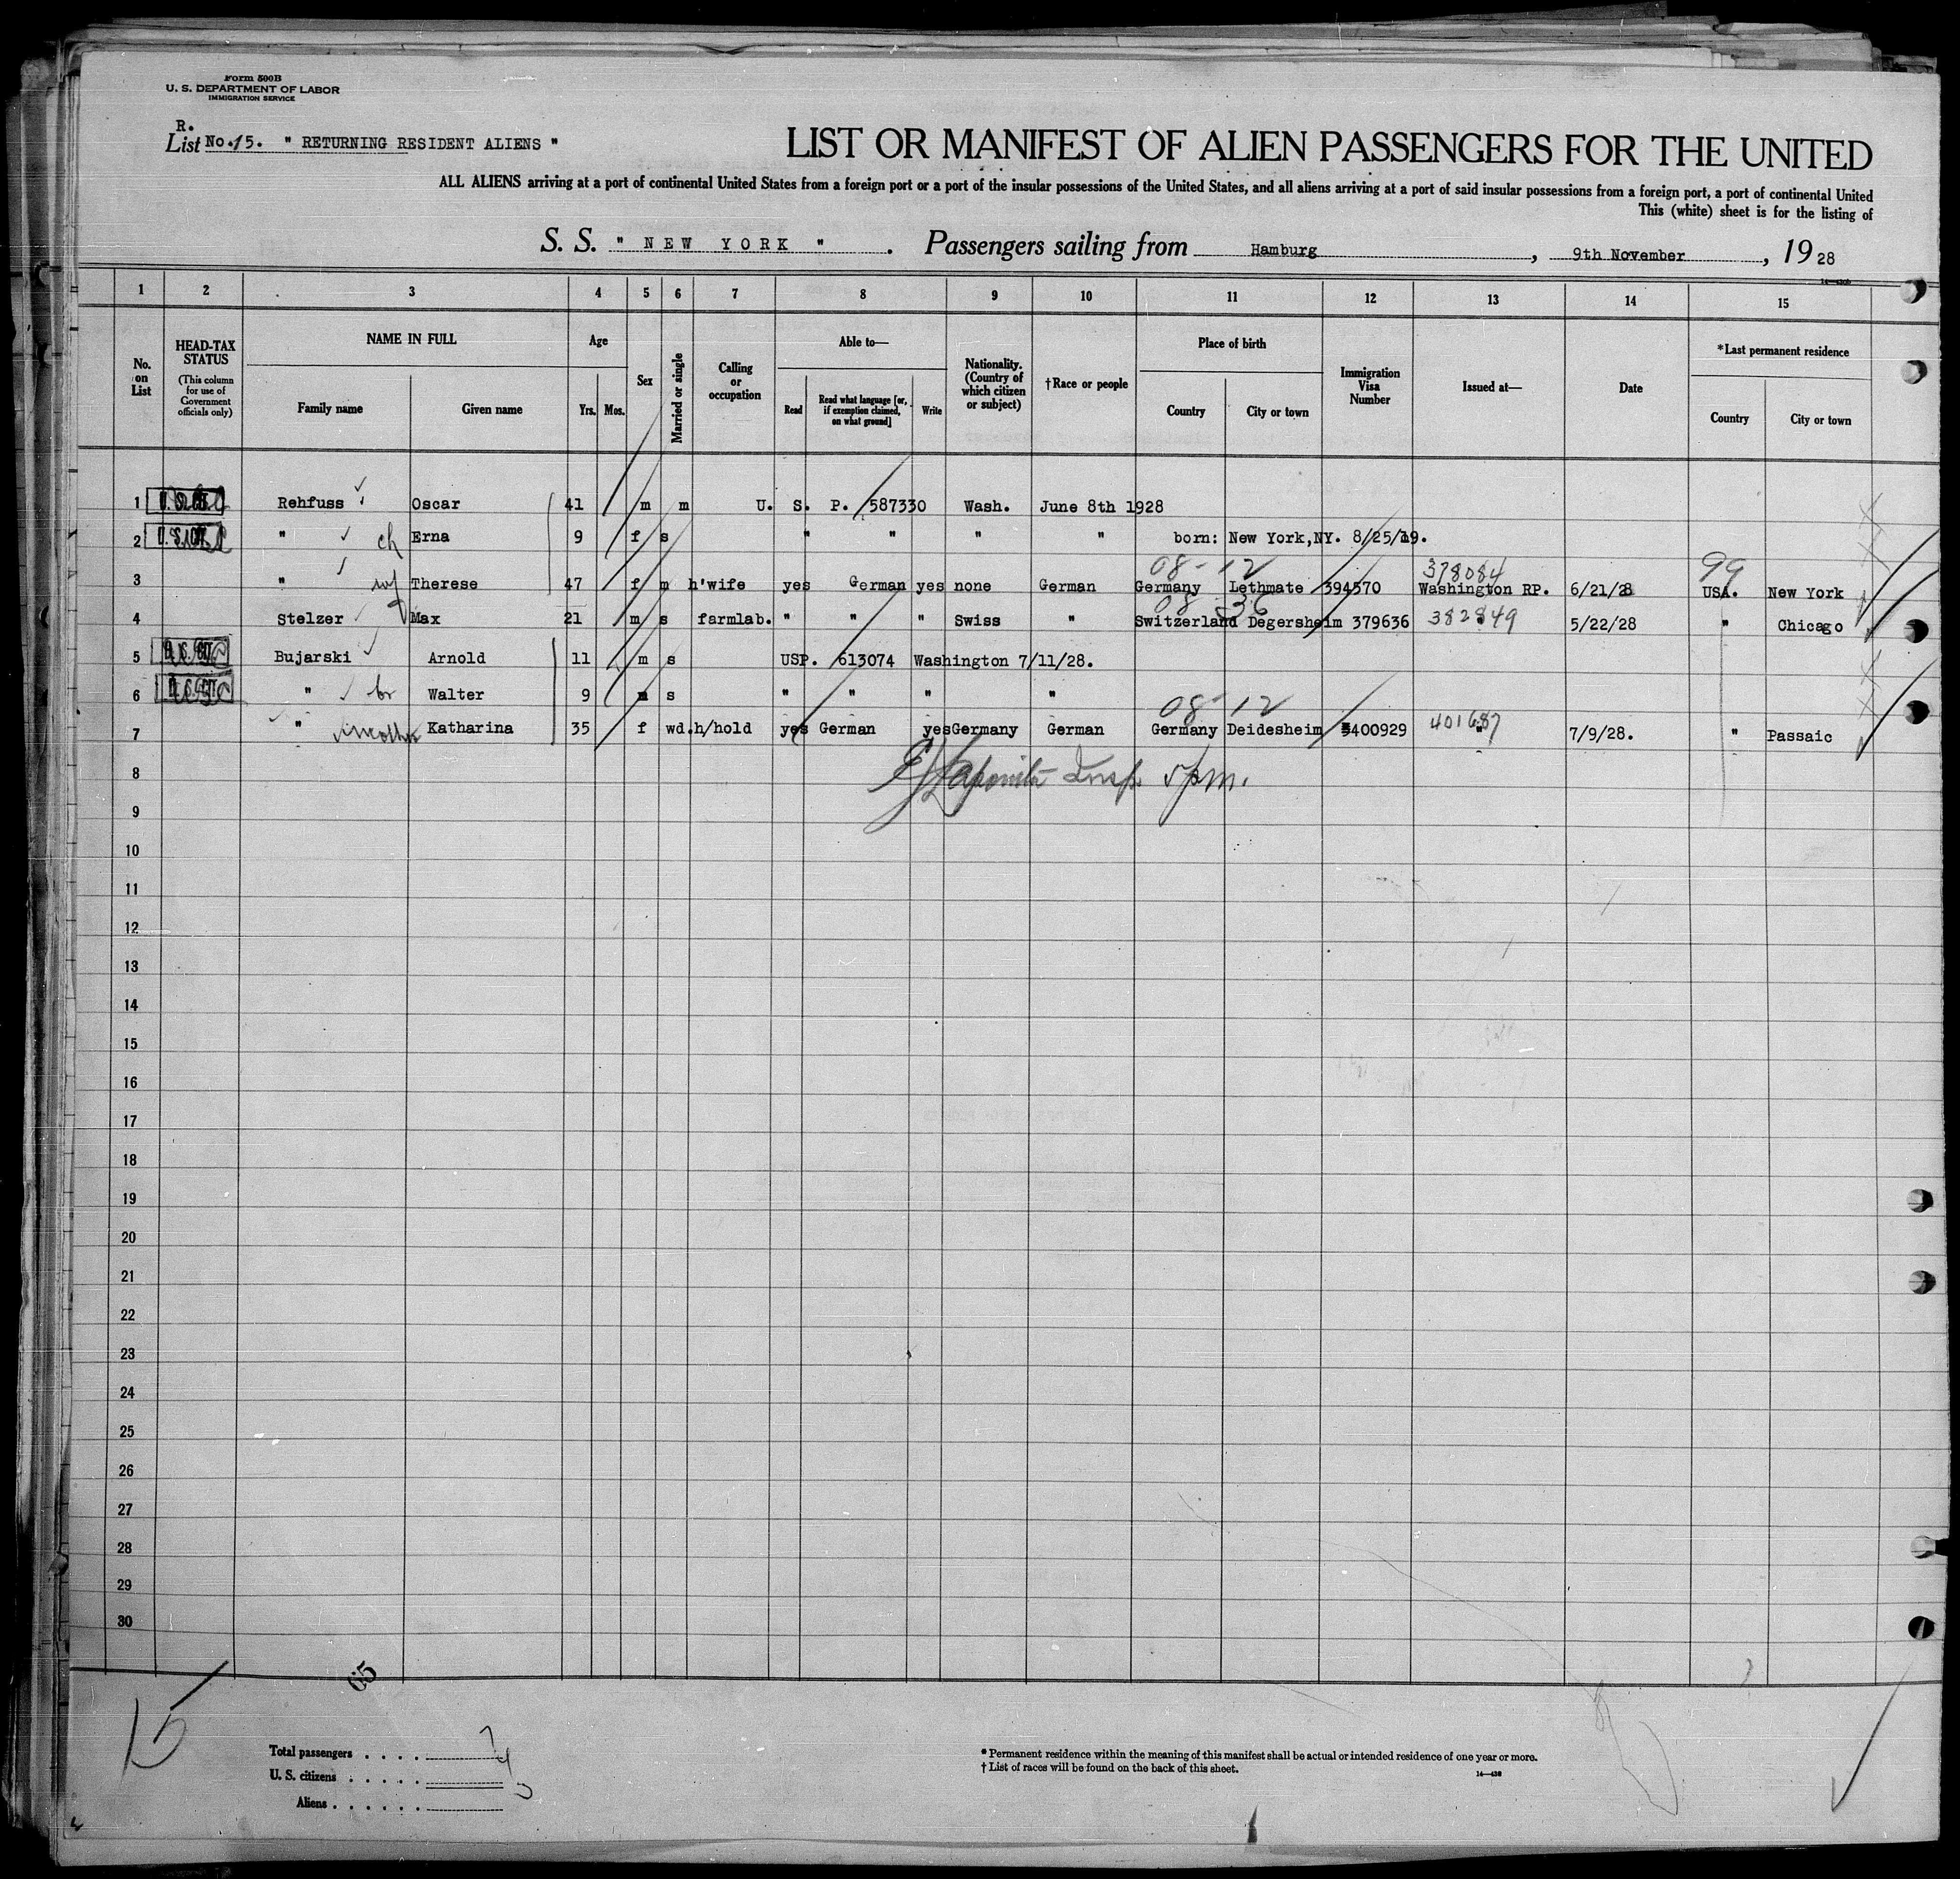 Form 500B
U. S. DEPARTMENT OF LABOR
IMMIGRATION SERVICE
R.
List No. 15. " RETURNING RESIDENT ALIENS "
LIST OR MANIFEST OF ALIEN PASSENGERS FOR THE UNITED
ALL ALIENS arriving at a port of continental United States from a foreign port or a port of the insular possessions of the United States, and all aliens arriving at a port of said insular possessions from a foreign port, a port of continental United
This (white) sheet is for the listing of
S. S. " NEW YORK " . Passengers sailing from Hamburg , 9th November , 1928
1 2 3 4 5 6 7 8 9 10 11 12 13 14 15
No. on List
HEAD-TAX STATUS (This column for use of Government officials only)
NAME IN FULL
Family name Given name
Age
Yrs. Mos.
Sex
Married or single
Calling or occupation
Able to—
Read Read what language [or, if exemption claimed, on what ground] Write
Nationality. (Country of which citizen or subject)
†Race or people
Place of birth
Country City or town
Immigration Visa Number
Issued at—
Date
*Last permanent residence
Country City or town
1 Rehfuss Oscar 41 m m U. S. P. 587330 Wash. June 8th 1928
2 " ch Erna 9 f s " " " " born: New York,NY. 8/25/19.
08-12 378084 99
3 " wf Therese 47 f m h'wife yes German yes none German Germany Lethmate 394570 Washington RP. 6/21/28 USA. New York
08 36
4 Stelzer Max 21 m s farmlab. " " " Swiss " Switzerland Degersheim 379636 382849 5/22/28 " Chicago
5 Bujarski Arnold 11 m s USP. 613074 Washington 7/11/28.
6 " br Walter 9 m s " " " "
08-12
7 " mother Katharina 35 f wd. h/hold yes German yes Germany German Germany Deidesheim 400929 401687 " 7/9/28. " Passaic
8 Insp. 5pm.
9
10
11
12
13
14
15
16
17
18
19
20
21
22
23
24
25
26
27
28
29
30
65
15
Total passengers . . . . 7
U. S. citizens . . . . . 4
Aliens . . . . . . 3
* Permanent residence within the meaning of this manifest shall be actual or intended residence of one year or more.
† List of races will be found on the back of this sheet.